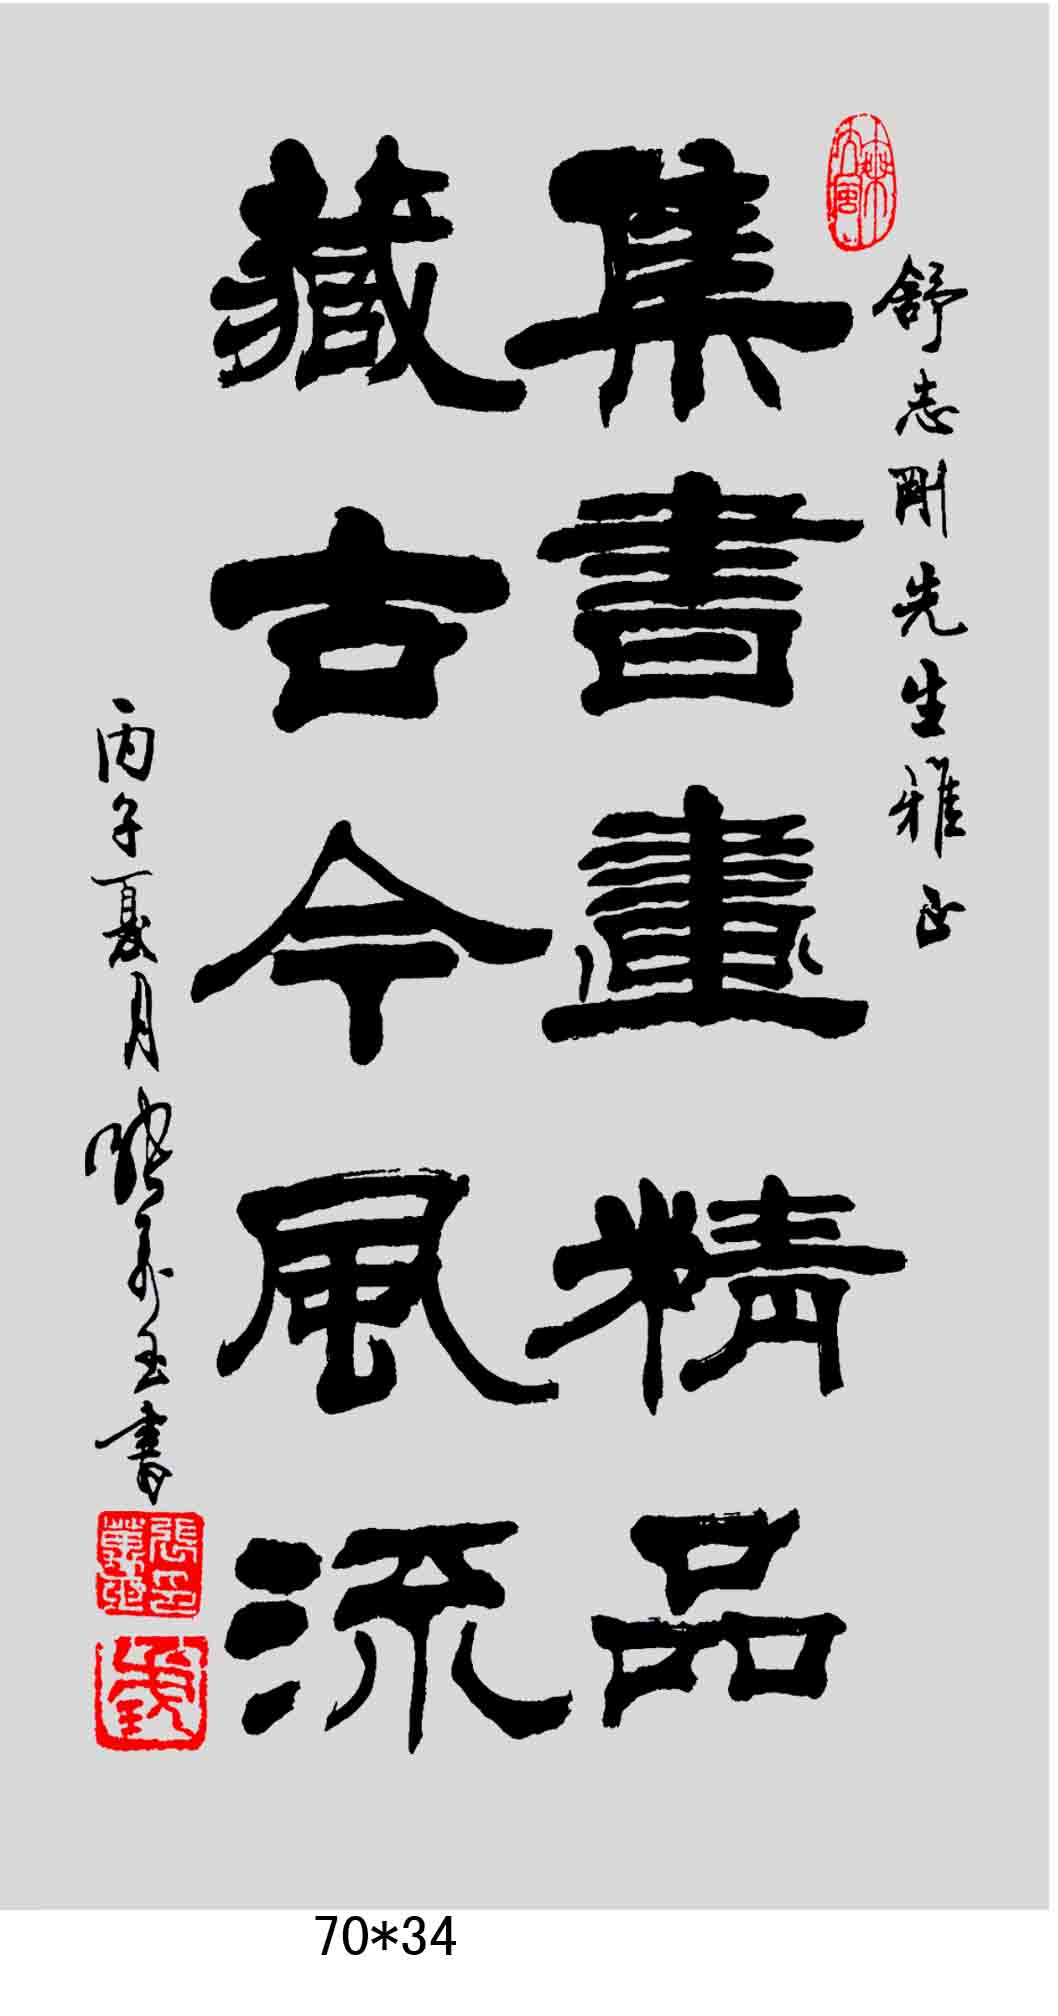 舒志剛先生雅正
集書畫精品
藏古今風流
丙子夏月張万玉書
70*34